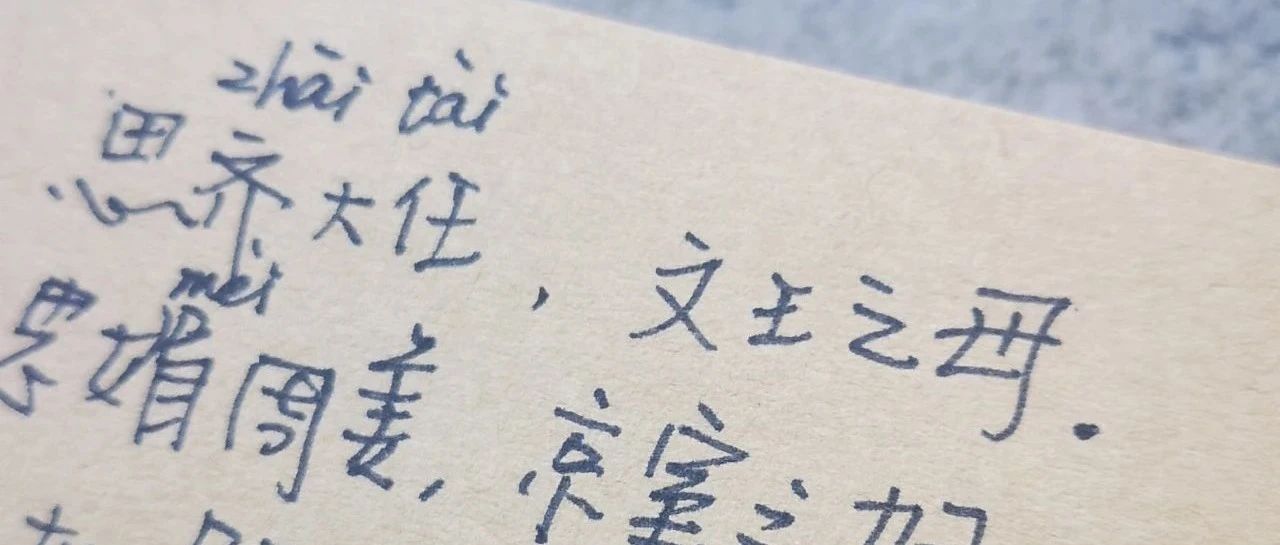 zhāi tài
思齐大任，文王之母.
mèi
思媚周姜，京室之